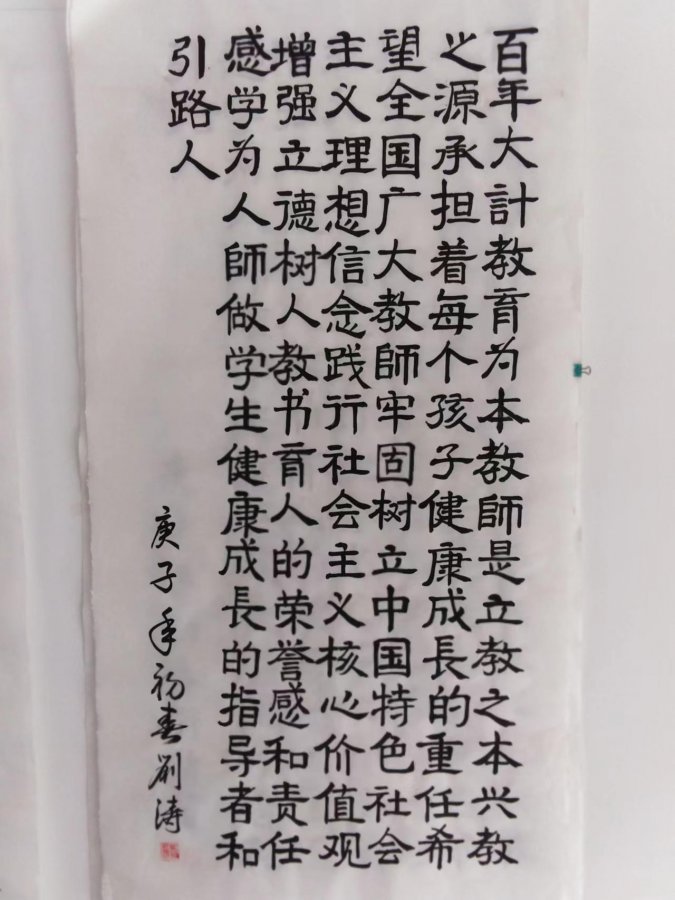 百年大計教育为本教師是立教之本兴教
之源承担着每个孩子健康成長的重任希
望全国广大教師牢固树立中国特色社会
主义理想信念践行社会主义核心价值观
增强立德树人教书育人的荣誉感和责任
感学为人師做学生健康成長的指导者和
引路人
庚子年初春刘涛